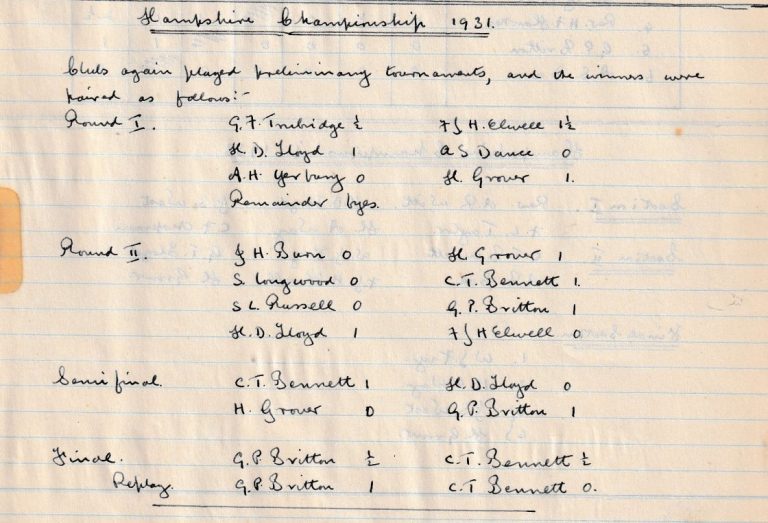 Hampshire Championship 1931.
Clubs again played preliminary tournaments, and the winners were
paired as follows:-
Round I. G.F. Trubidge ½ F J H. Elwell 1½
H. D. Lloyd 1 A S Dance 0
A.H. Yerbury 0 H. Grover 1.
Remainder byes.
Round II. J H. Burn 0 H. Grover 1
S. Longwood 0 C.T. Bennett 1.
S L. Russell 0 G. P. Britton 1
H. D. Lloyd 1 F J H Elwell 0
Semi final. C. T. Bennett 1 H. D. Lloyd 0
H. Grover 0 G. P. Britton 1
Final. G. P. Britton ½ C. T. Bennett ½
Replay. G. P. Britton 1 C. T Bennett 0.